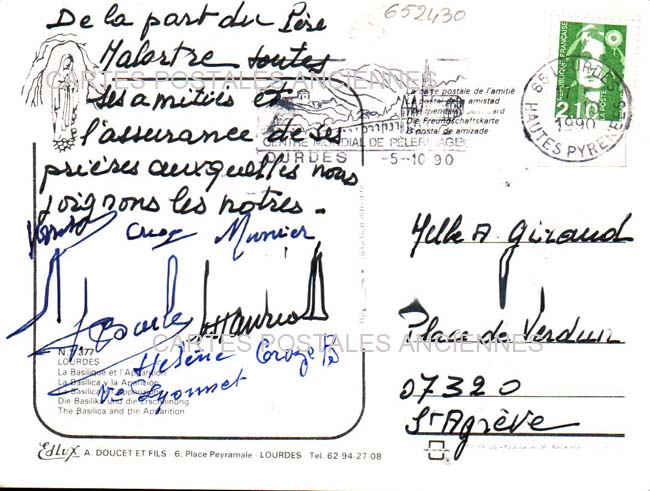 De la part du Père
Malartre toutes
ses amitiés et
l'assurance de ses
prières auxquelles nous
joignons les nôtres.
652430
CARTES POSTALES ANCIENNES
La carte postale de l'amitié
La postal de amistad
Die Freundschaftskarte
postal de amizade
CENTRE MONDIAL DE PELERINAGE
LOURDES -5-10 90
REPUBLIQUE FRANÇAISE
2,10
65 LOURDES
1990
HAUTES PYRENEES
Melle A. Giraud
Place de Verdun
07320
St Agrève
Croze Munier
Hélène Croze
CARTES POSTALES ANCIENNES
N. 377
LOURDES
La Basilique et l'Apparition
La Basilica y la Aparición
Die Basilika und die Erscheinung
The Basilica and the Apparition
Edlux A. DOUCET ET FILS - 6, Place Peyramale - LOURDES - Tel. 62-94-27-08